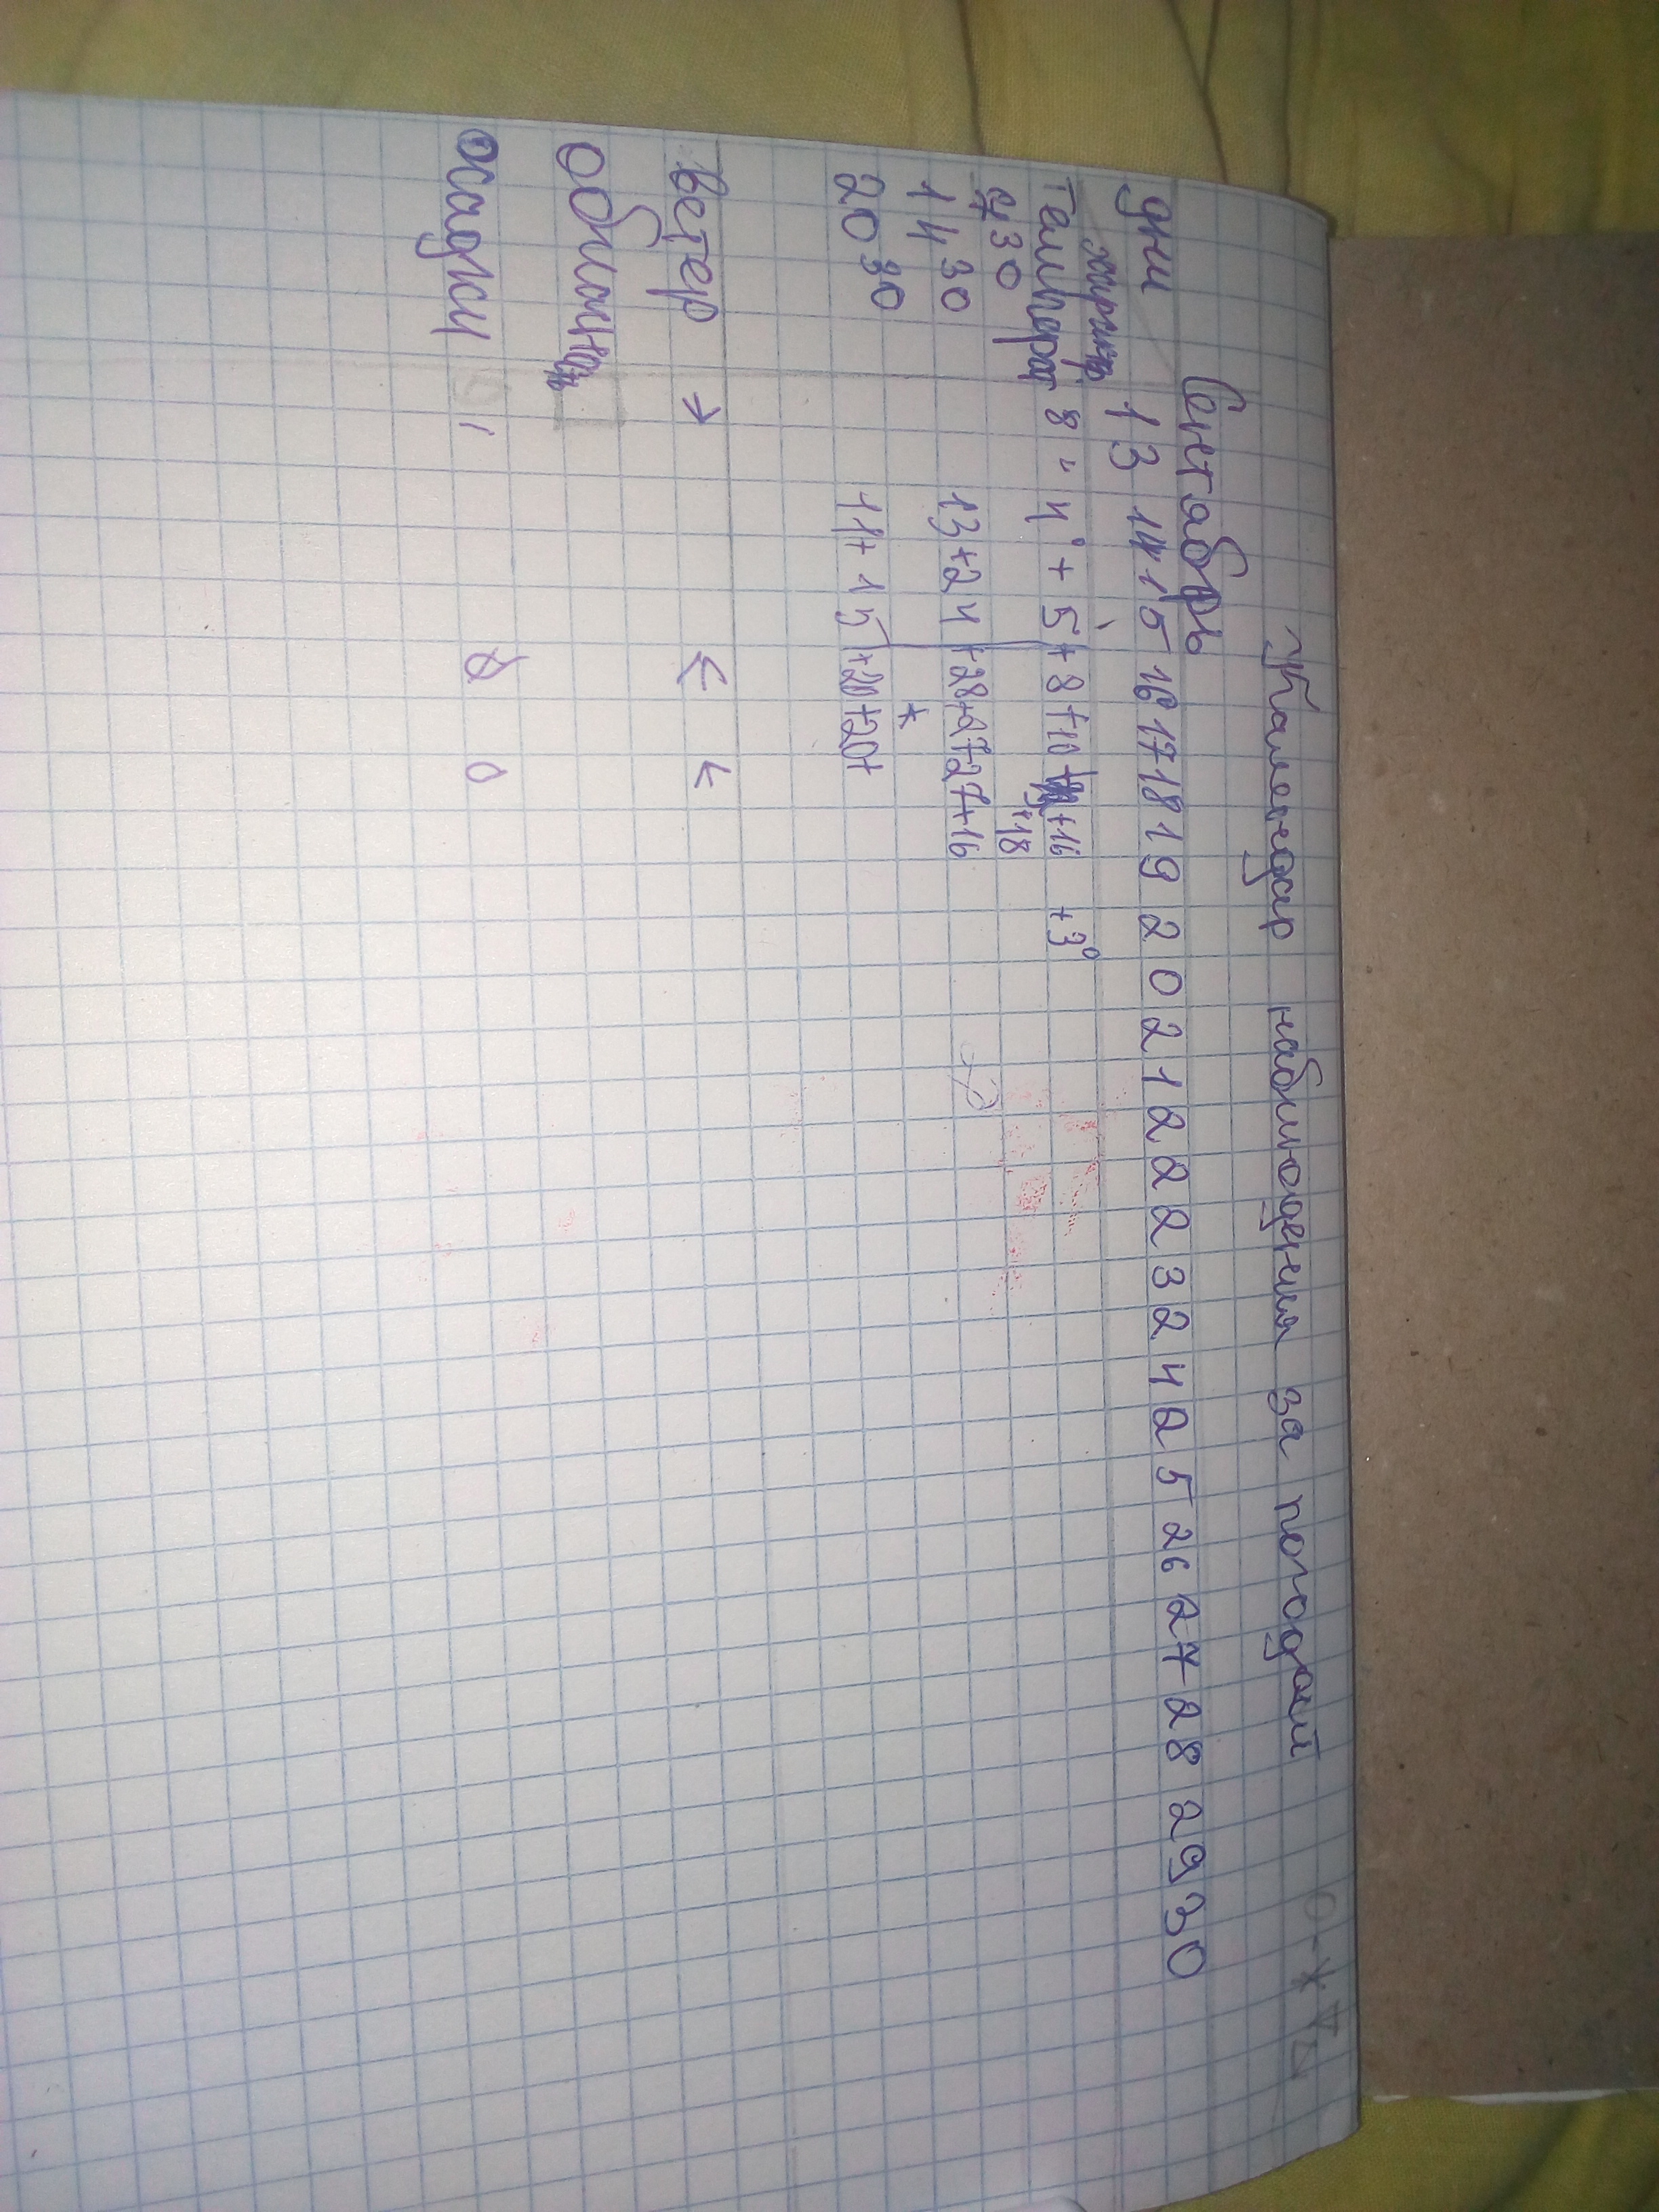 Календар наблюдения за погодой
Сентябрь
дни 13 14 15 16 17 18 19 20 21 22 23 24 25 26 27 28 29 30
8 " 4° + 5 + 8 + 10 + 16 + 3°
730 + 18
1430 13 + 24 + 28 + 27 + 27 + 16
*
2030 11 + 15 + 20 + 20 +
ветер → ← ←
осадки